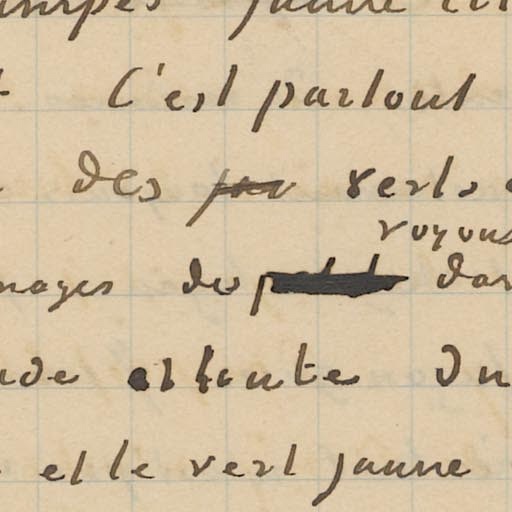 jaune
C'est partout
des verts
voyous
nages des
et toute du
et le vert jaune